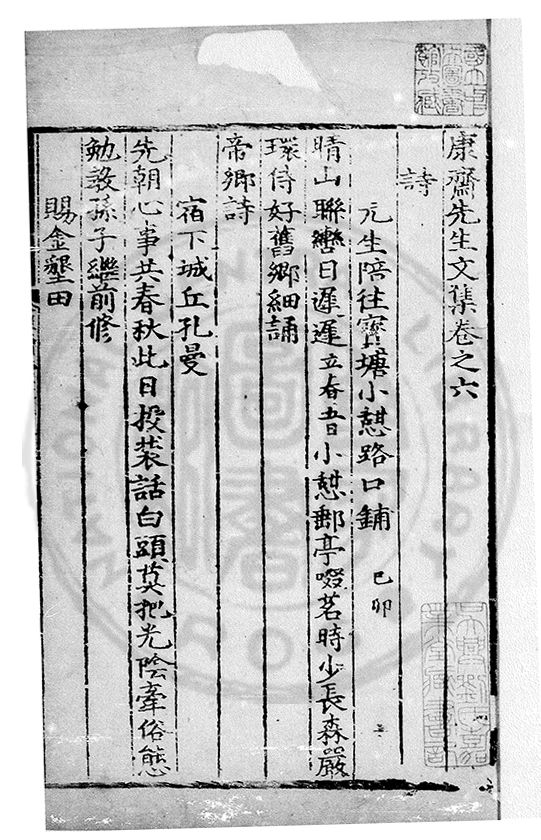 康齋先生文集卷之六
詩
元生陪往寳塘小憇路口鋪 己卯
晴山聯轡日遲遲立春 小憇郵亭啜茗時少長森嚴
環侍好舊鄉細誦
帝鄉詩
宿下城丘孔曼
先朝心事共春秋此日投装話白頭莫把光陰牽俗態
勉教孫子繼前修
賜金墾田